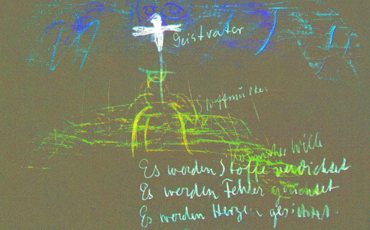 Geistvater
Stoffmutter
Wille
Es werden Stoffe verdichtet
Es werden Fehler gerichtet
Es werden Herzen gesichtet.